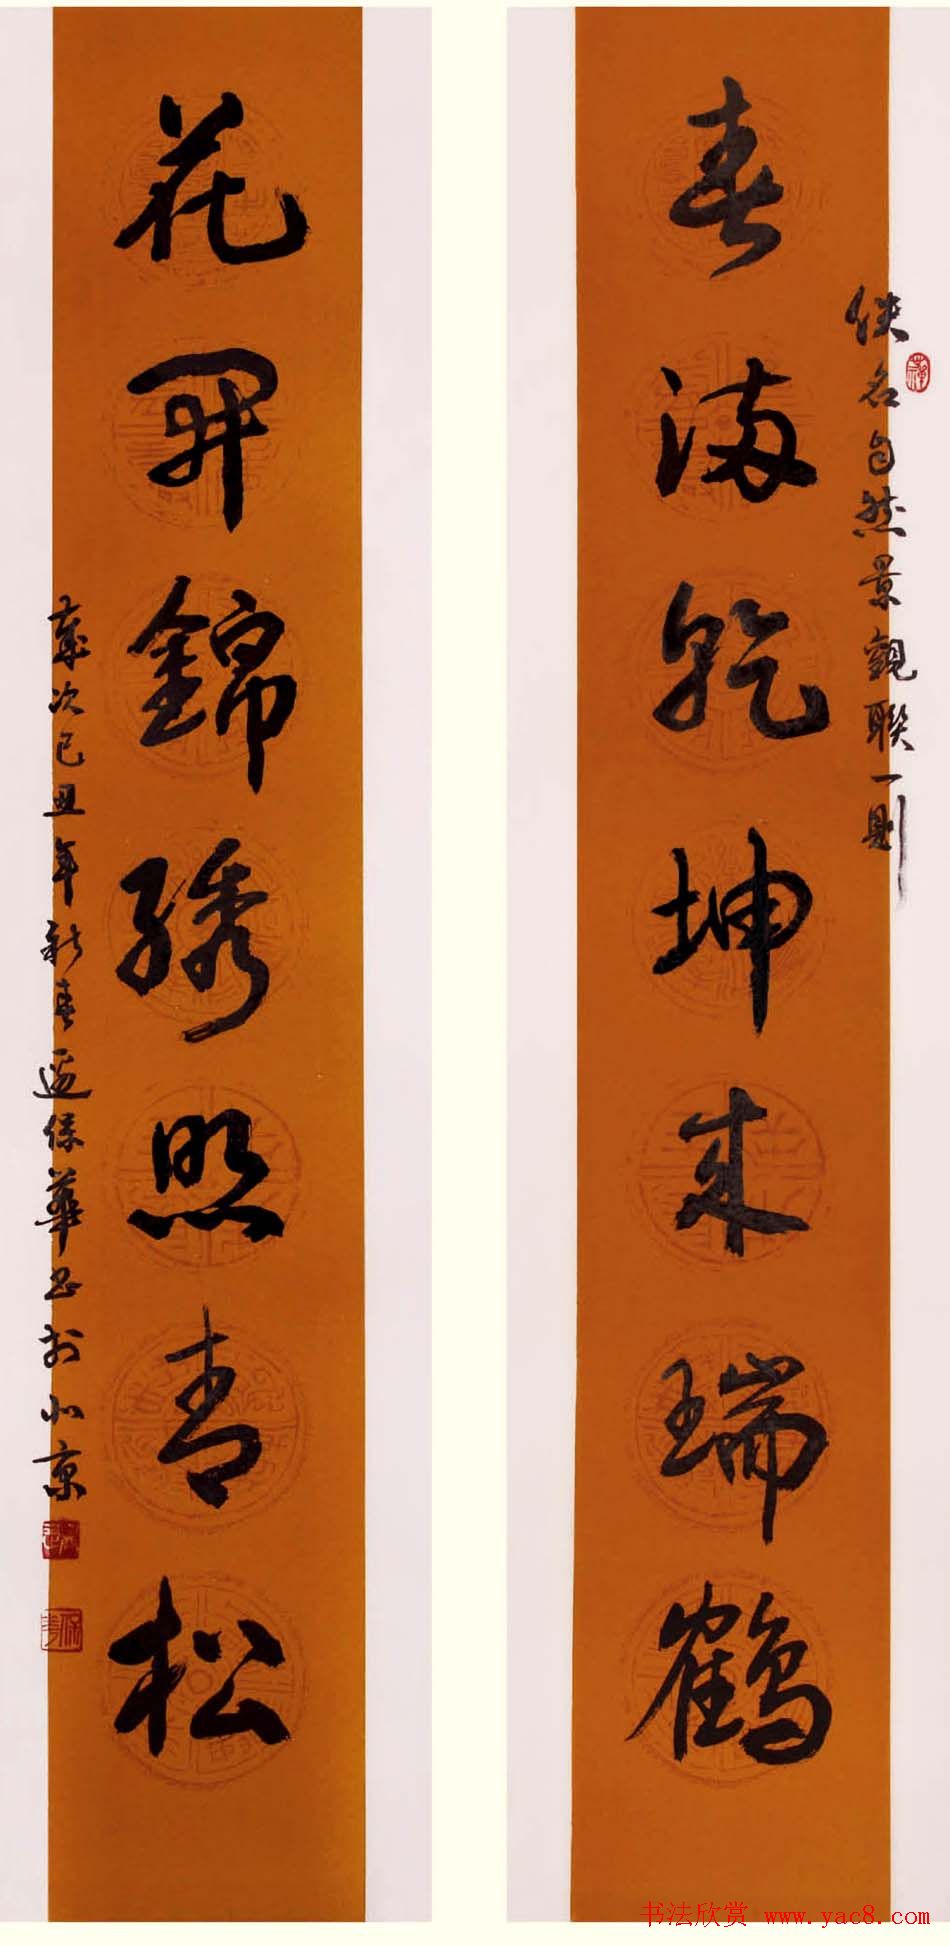 春满乾坤来瑞鹤
佚名自然景观联一则
花开锦绣照青松
岁次己丑年新春 保华书于北京
书法欣赏 www.yac8.com